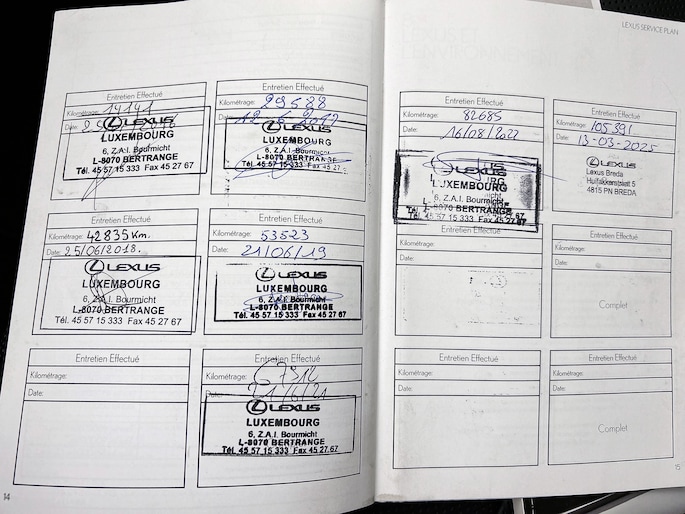 LEXUS SERVICE PLAN
Entretien Effectué
Kilométrage: 14141
Date:
LEXUS
LUXEMBOURG
6, Z.A.I. Bourmicht
L-8070 BERTRANGE
Tél. 45 57 15 333 Fax 45 27 67
Entretien Effectué
Kilométrage: 29588
Date:
LEXUS
LUXEMBOURG
6, Z.A.I. Bourmicht
L-8070 BERTRANGE
Tél. 45 57 15 333 Fax 45 27
Entretien Effectué
Kilométrage: 42835 Km.
Date: 25/06/2018.
LEXUS
LUXEMBOURG
6, Z.A.I. Bourmicht
L-8070 BERTRANGE
Tél. 45 57 15 333 Fax 45 27 67
Entretien Effectué
Kilométrage: 53523
Date: 21/06/19
LEXUS
LUXEMBOURG
6, Z.A.I. Bourmicht
L-8070 BERTRANGE
Tél. 45 57 15 333 Fax 45 27 67
Entretien Effectué
Kilométrage:
Date:
Entretien Effectué
Kilométrage:
Date:
LEXUS
LUXEMBOURG
6, Z.A.I. Bourmicht
L-8070 BERTRANGE
Tél. 45 57 15 333 Fax 45 27 67
14
Entretien Effectué
Kilométrage: 82685
Date: 16/08/2022
LEXUS
LUXEMBOURG
6, Z.A.I. Bourmicht
L-8070 BERTRANGE
Tél. 45 57 15 333 Fax 45 27 67
Entretien Effectué
Kilométrage: 105391
Date: 13-03-2025
LEXUS
Lexus Breda
4815 PN BREDA
Entretien Effectué
Kilométrage:
Date:
Entretien Effectué
Kilométrage:
Date:
Complet
Entretien Effectué
Kilométrage:
Date:
Entretien Effectué
Kilométrage:
Date:
Complet
15